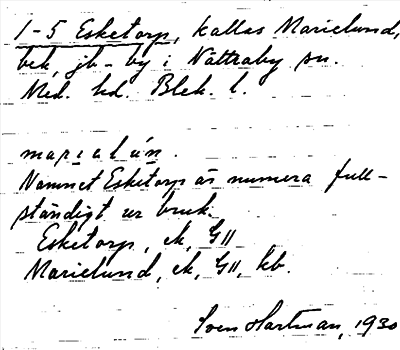 1-5 Esketorp, kallas Marielund,
bek. jb-by i Nättraby sn.
Med. hd. Blek. l.
marialún.
Namnet Esketorp är numera full-
ständigt ur bruk.
Esketorp, ek, GII
Marielund, ek, GII, kb.
Sven Hartman, 1930